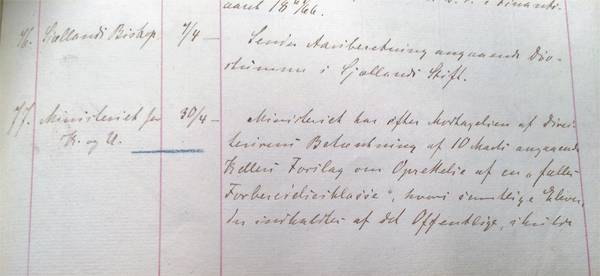 aaret 18 65/66.
76. Sjællands Biskop 7/4 — Sender Aarsberetning angaaende Døv-
stumme i Sjællands Stift.
77. Ministeriet for 30/4 — Ministeriet har efter Modtagelsen af Direc-
K. og U. teurens Betænkning af 10 Marts angaaende
Kellers Forslag om Oprettelse af en "fælles
Forberedelsesklasse", hvori samtlige Elever,
der indkaldtes af det Offentlige, skulde